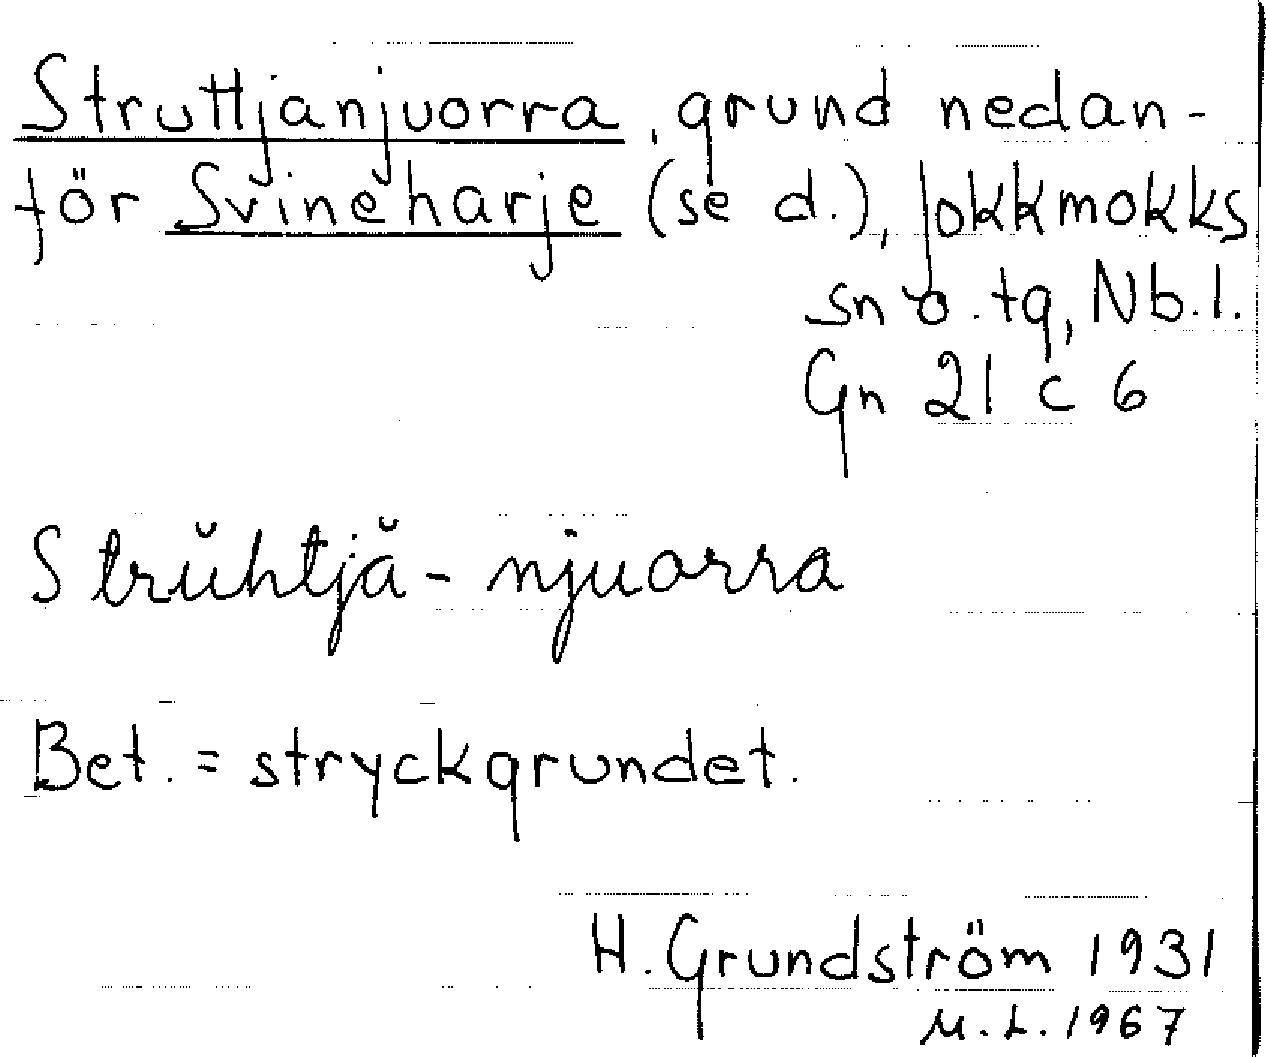 Struttjanjuorra, grund nedan-
för Svineharje (se d.), Jokkmokks
sn o. tg, Nb.l.
Gn 21 c 6
Strŭhtjă-njuorra
Bet. = stryckgrundet.
H. Grundström 1931
M.L. 1967